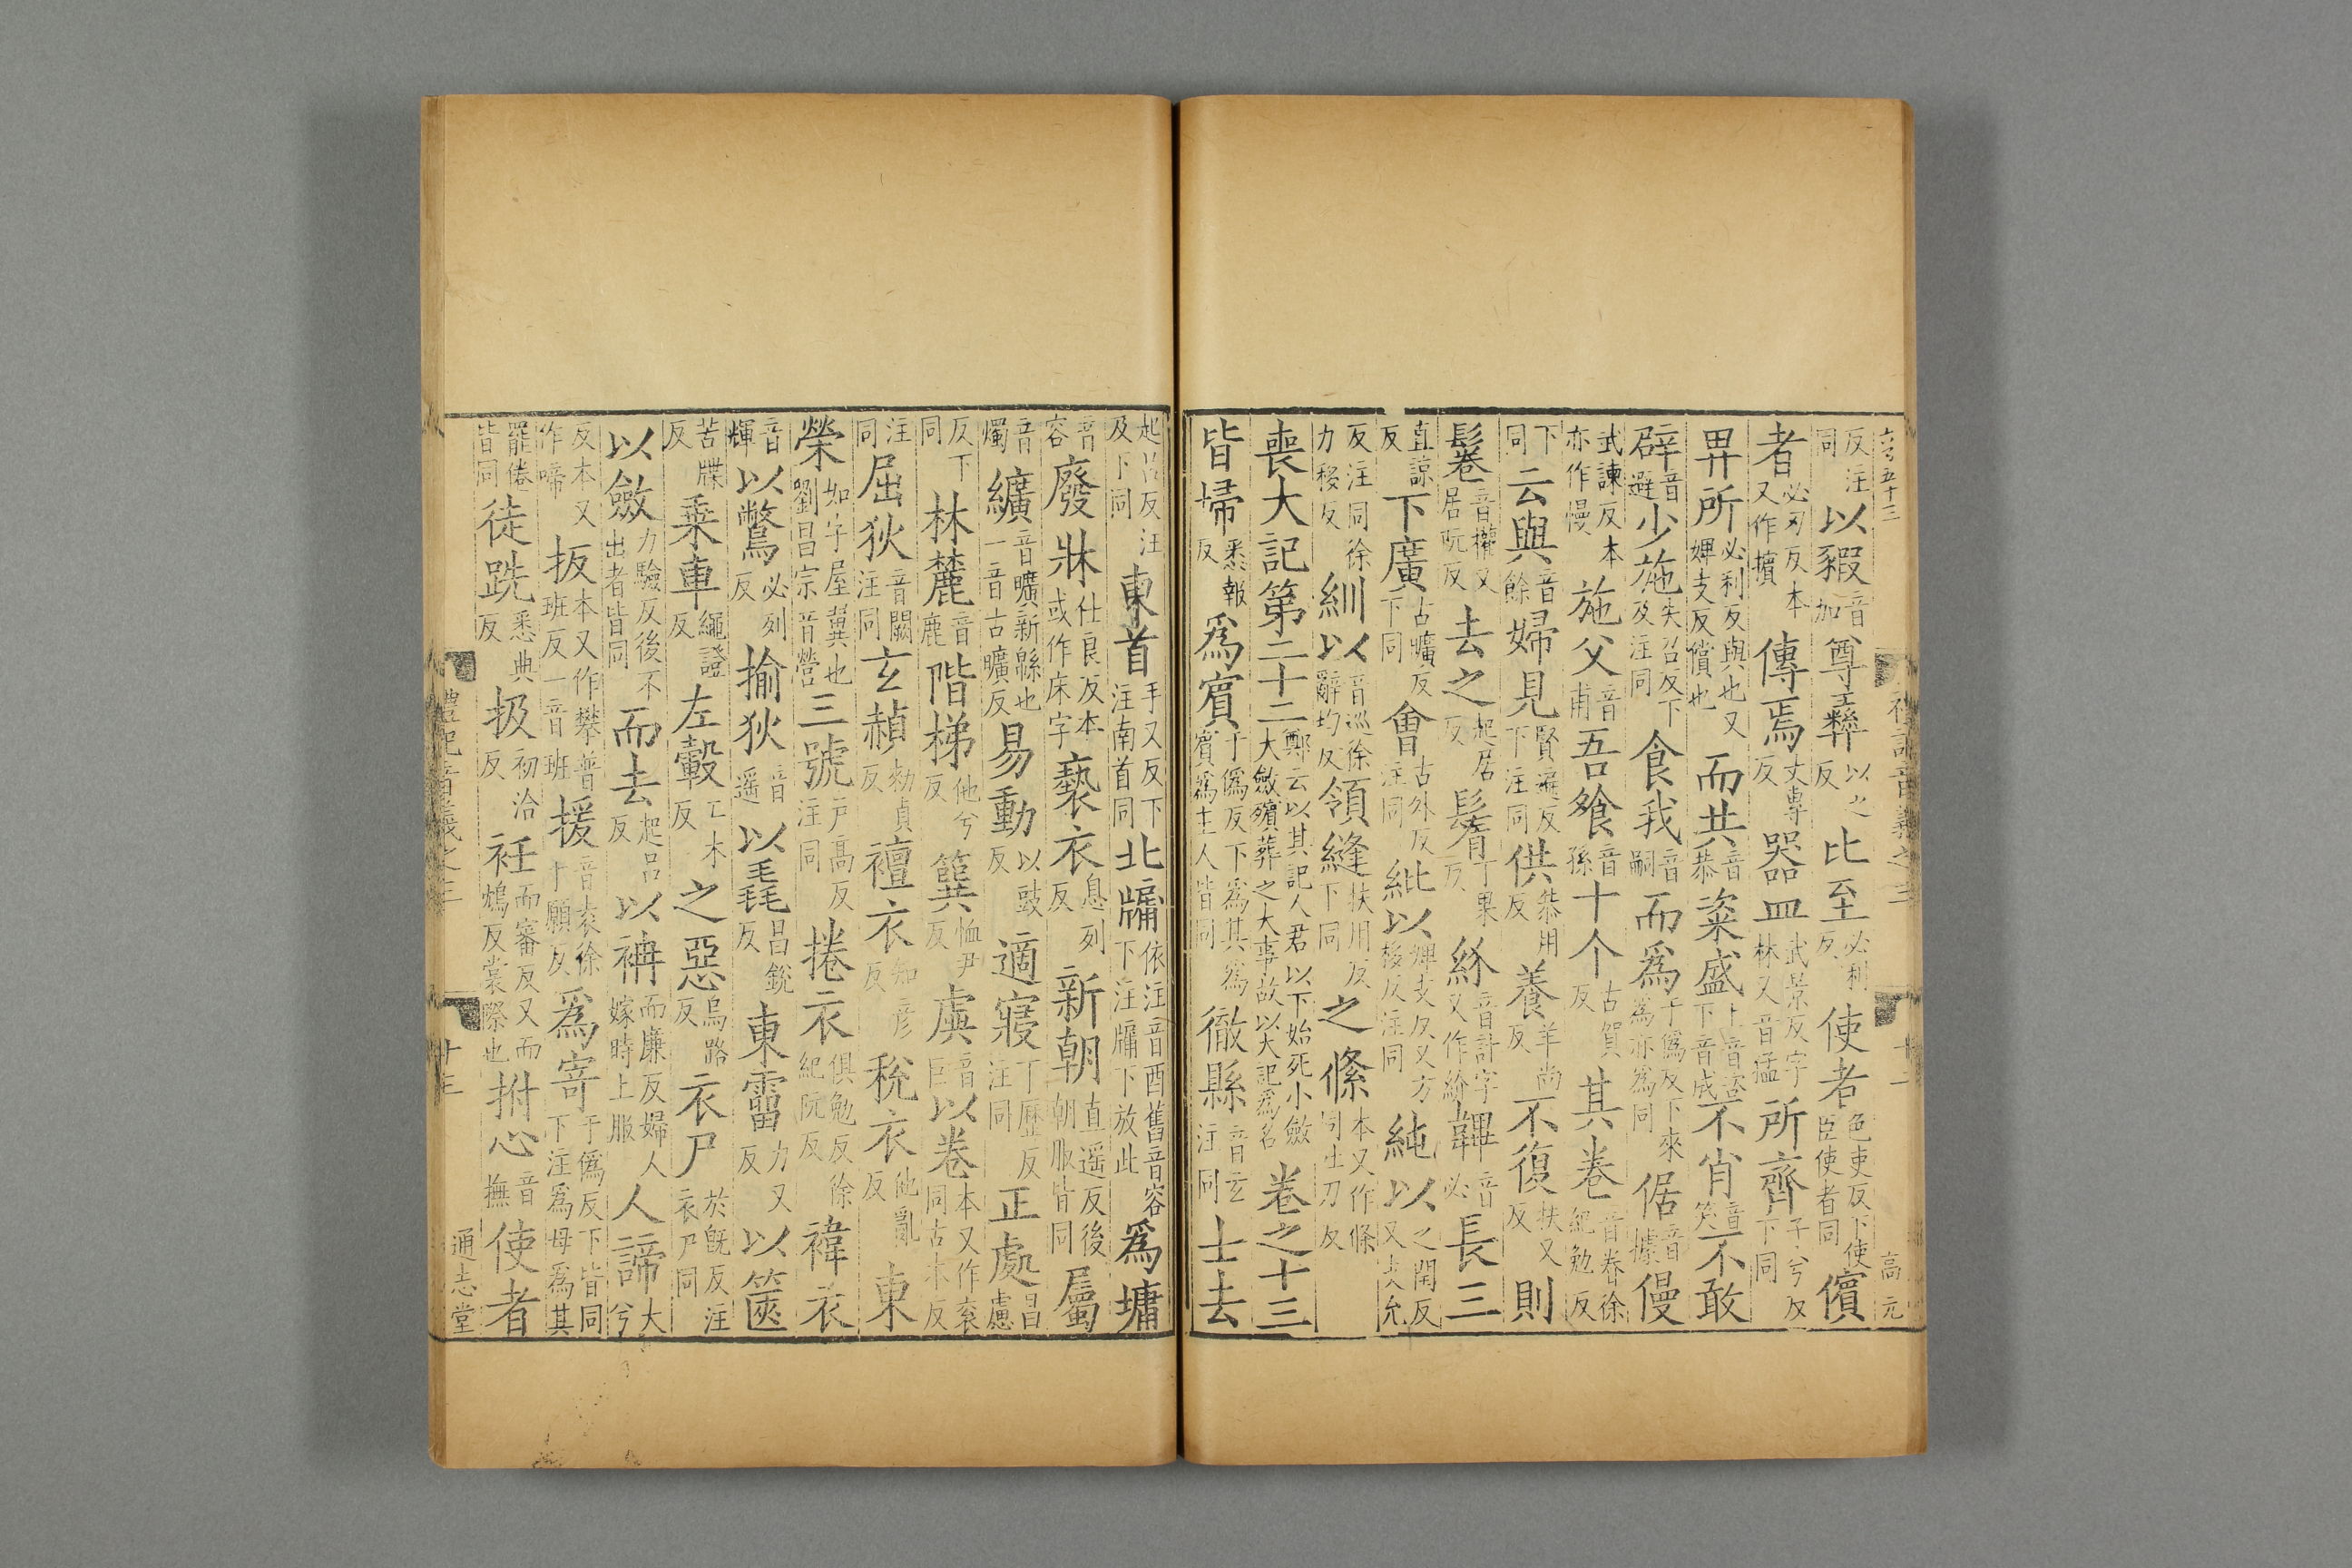 反注同以豭音加尊彝以之反比至必利反使者色吏反下使臣使者同儐
者必刃反本又作擯傳焉丈專反器皿武景反字林又音猛所齊子兮反下同
畀所必利反與也又婢支反償也而共音恭粢盛上音咨下音成不肖音笑不敢
辟音避少施失召反下及注同食我音嗣而爲于僞反下來爲亦爲同倨音據慢
武諫反本亦作慢施父音甫吾飧音孫十个古賀反其卷音眷徐紀勉反
下同云與音餘婦見賢遍反下注同供恭用反養羊尚反不復扶又反則
鬈音權又居阮反去之起居反鬌丁果反紒音計字又作紛韠音必長三
直諒反下廣古曠反下同會古外反注同紕以婢支反又方移反注同純以之閏反又支允
反注同徐力移反紃以音巡徐辭均反領縫扶用反下同之絛本又作條同吐刀反
喪大記第二十二鄭云以其記人君以下始死小斂大斂殯葬之大事故以大記爲名卷之十三
皆埽悉報反爲賓于僞反下爲其爲賓爲主人皆同徹縣音玄注同士去
起呂反注及下同東首手又反下注南首同北牖依注音酉舊音容下注牖下放此爲墉
音容廢牀仕良反本或作床字褻衣息列反新朝直遥反後朝服皆同屬
音燭纊音曠新緜也一音古曠反易動以豉反適寢丁歷反注同正處昌慮
反下同林麓音鹿階梯他兮反簨恤尹反虡音巨以卷本又作衮同古本反
注同屈狄音闕注同玄赬勑貞反襢衣知彦反稅衣他亂反東
榮如字屋翼也劉昌宗音營三號戶高反注同捲衣俱勉反徐紀阮反褘衣
音輝以鷩必列反揄狄音遥以毳昌銳反東霤力又反以篋
苦牒反乗車繩證反左轂工木反之惡烏路反衣尸於旣反注衣尸同
以斂力驗反後不出者皆同而去起呂反以袡而廉反婦人嫁時上服人諦大兮
反本又作啼扳本又作攀普班反一音班援音袁徐于願反爲寄于僞反下皆同下注爲母爲其
罷倦皆同徒跣悉典反扱初洽反衽而審反又而鴆反裳際也拊心音撫使者
禮記音義之三 十三 通志堂